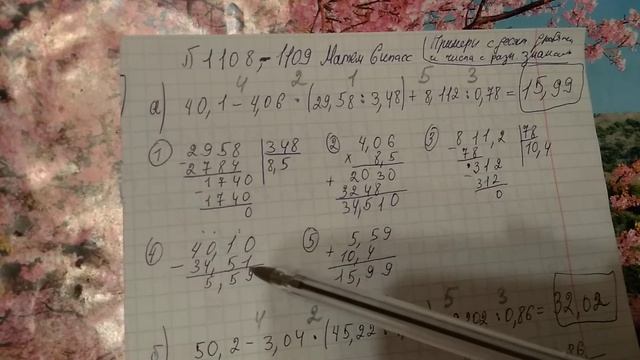 П 1108, - 1109 Матем 6 класс (Примеры с десят дробями
и числа с разн знаками
4 2 1 5 3
а) 40,1 - 4,06 · (29,58 : 3,48) + 8,112 : 0,78 = 15,99
① 2958 348
- 2784 8,5
1740
- 1740
0
② 4,06
× 8,5
2030
+ 3248
34,510
③ 811,2 78
- 78 10,4
312
- 312
0
④ 4010
- 34,51
5,59
⑤ 5,59
+ 10,4
15,99
4 2 5 3
б) 50,2 - 3,04 · (45,22 : 202 : 0,86 = 32,02
86